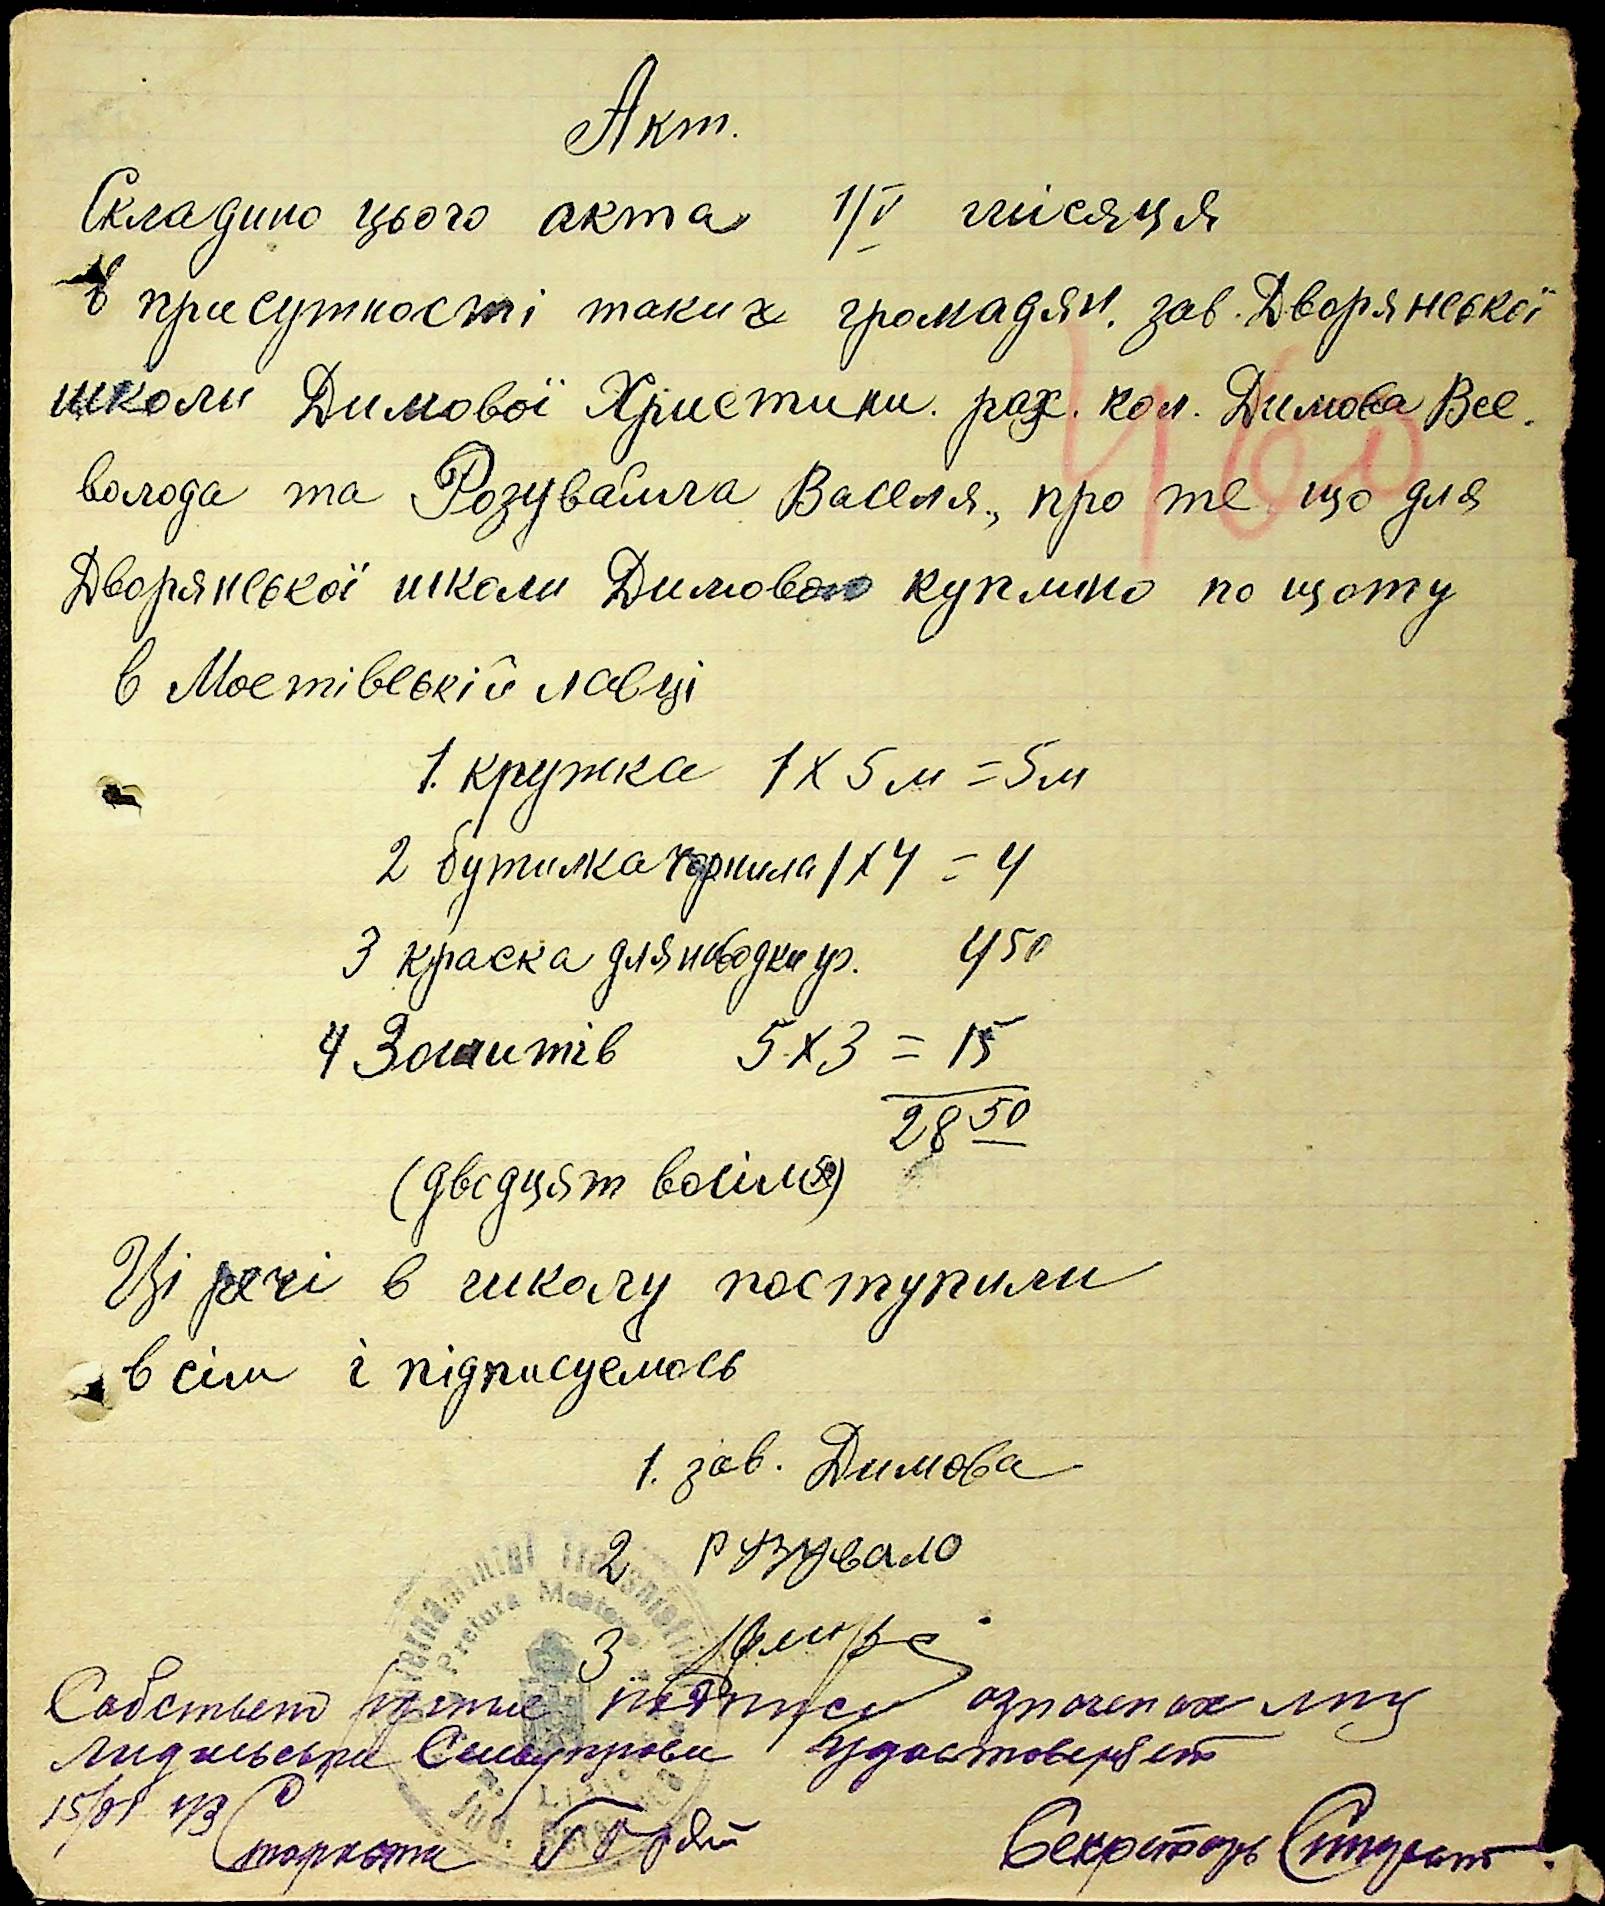 Акт.
Складино цього акта 1/V місяця
в присутності таких громадян. зав. Дворянської
школи Димової Христини. рах. кол. Димова Все.
волода та Розувайла Василя, про те що для
Дворянської школи Димовою куплино по щоту
в Мостівській лавці
1. кружка 1 х 5 м = 5 м
2 бутилка чорнила 1 х 4 = 4
3 краска для 450
4 Зошитів 5 х 3 = 15
28 50
(двадцят восім 50)
Ці речі в школу поступили
всім і підписуемось
1. зав. Димова
2 Рузувало
3
460
Guvernământul Transnistriei
Pretura Mostovoi
Jud.
подписи означеных лиц
удостоверяет
15/ 43
Староста
Секретарь